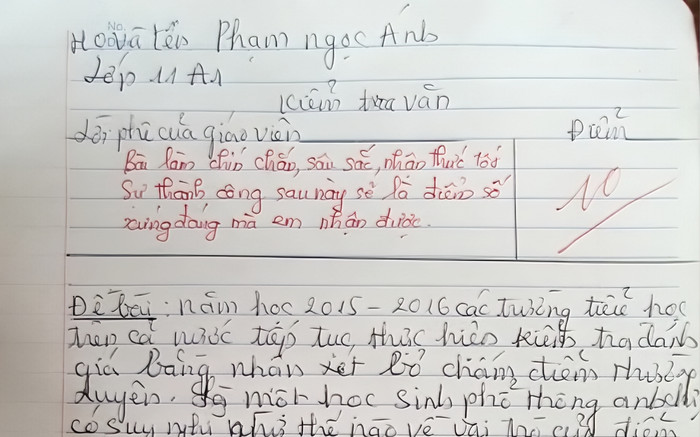 No.
Họ và tên Phạm ngọc Ánh
Lớp 11 A1
Kiểm tra văn
Lời phê của giáo viên Điểm
Bài làm chín chắn, sâu sắc, nhận thức tốt
Sự thành công sau này sẽ là điểm số
xứng đáng mà em nhận được.
10
Đề bài: năm học 2015 - 2016 các trường tiểu học
trên cả nước tiếp tục thực hiện kiểm tra đánh
giá bằng nhận xét bỏ chấm điểm thường
duyên. Là một học sinh phổ thông anh chị
có suy nghĩ như thế nào về vai trò của điểm